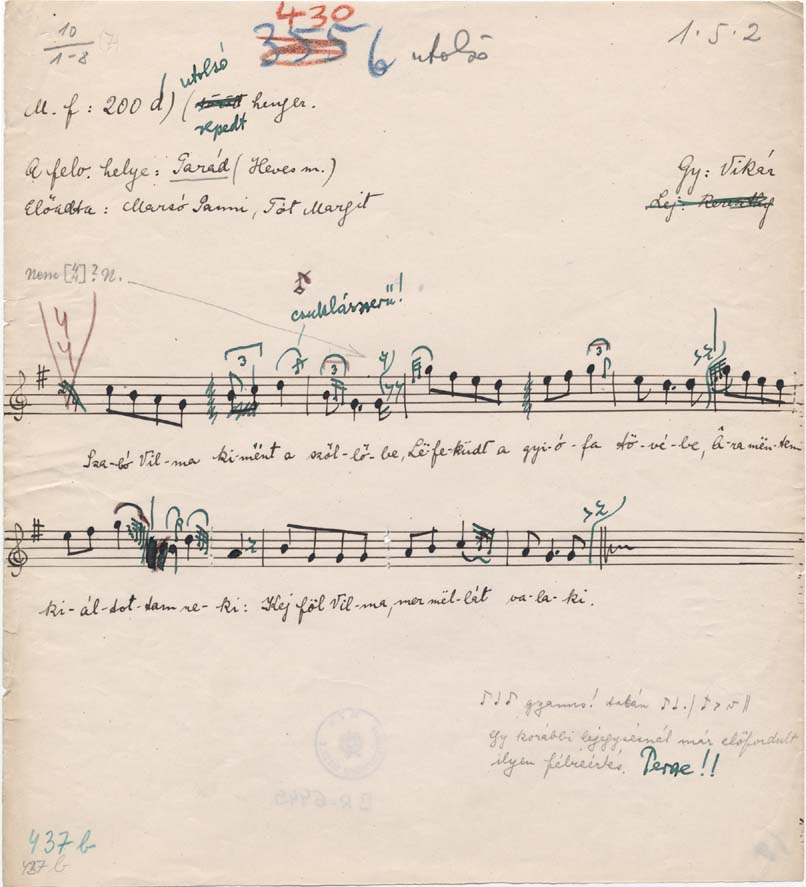 10
1-8 (7)
430
355 6 utolsó
1.5.2
utolsó
M. f: 200 d) ( henger.
repedt
A felv. helye: Parád (Heves m.)
Gy: Vikár
Előadta: Marsó Panni, Tót Margit
Lej:
Nem [4/4]? N.
csuklásszerű!
4
4
3 3 3
Sza-bó Vil-ma ki-mënt a szől-lő-be, Lë-fe-küdt a gyi-ó-fa tö-vé-be, Â-ra mën-tem
ki-ál-dot-tam ne-ki: Kej föl Vil-ma, mer mël-lát va-la-ki.
gyanus! talán
Gy korábbi lejegyzésnél már előfordult
ilyen félreértés. Persze!!
437 b
437 b